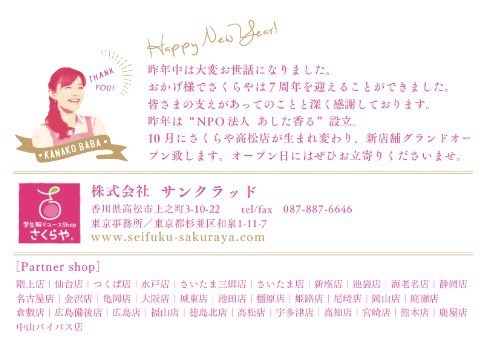 Happy New Year!
THANK YOU!
KANAKO BABA
昨年中は大変お世話になりました。
おかげ様でさくらやは7周年を迎えることができました。
皆さまの支えがあってのことと深く感謝しております。
昨年は“NPO法人 あした香る”設立。
10月にさくらや高松店が生まれ変わり、新店舗グランドオー
プン致します。オープン日にはぜひお立寄りくださいませ。
学生服リユースShop
さくらや。
株式会社 サンクラッド
香川県高松市上之町3-10-22 tel/fax 087-887-6646
東京事務所／東京都杉並区和泉1-11-7
www.seifuku-sakuraya.com
[Partner shop]
階上店｜仙台店｜つくば店｜水戸店｜さいたま三郷店｜さいたま店｜新座店｜池袋店｜海老名店｜静岡店
名古屋店｜金沢店｜亀岡店｜大阪店｜城東店｜池田店｜橿原店｜姫路店｜尼崎店｜岡山店｜庭瀬店
倉敷店｜広島備後店｜広島店｜福山店｜徳島北店｜高松店｜宇多津店｜高知店｜宮崎店｜熊本店｜鹿屋店
中山バイパス店